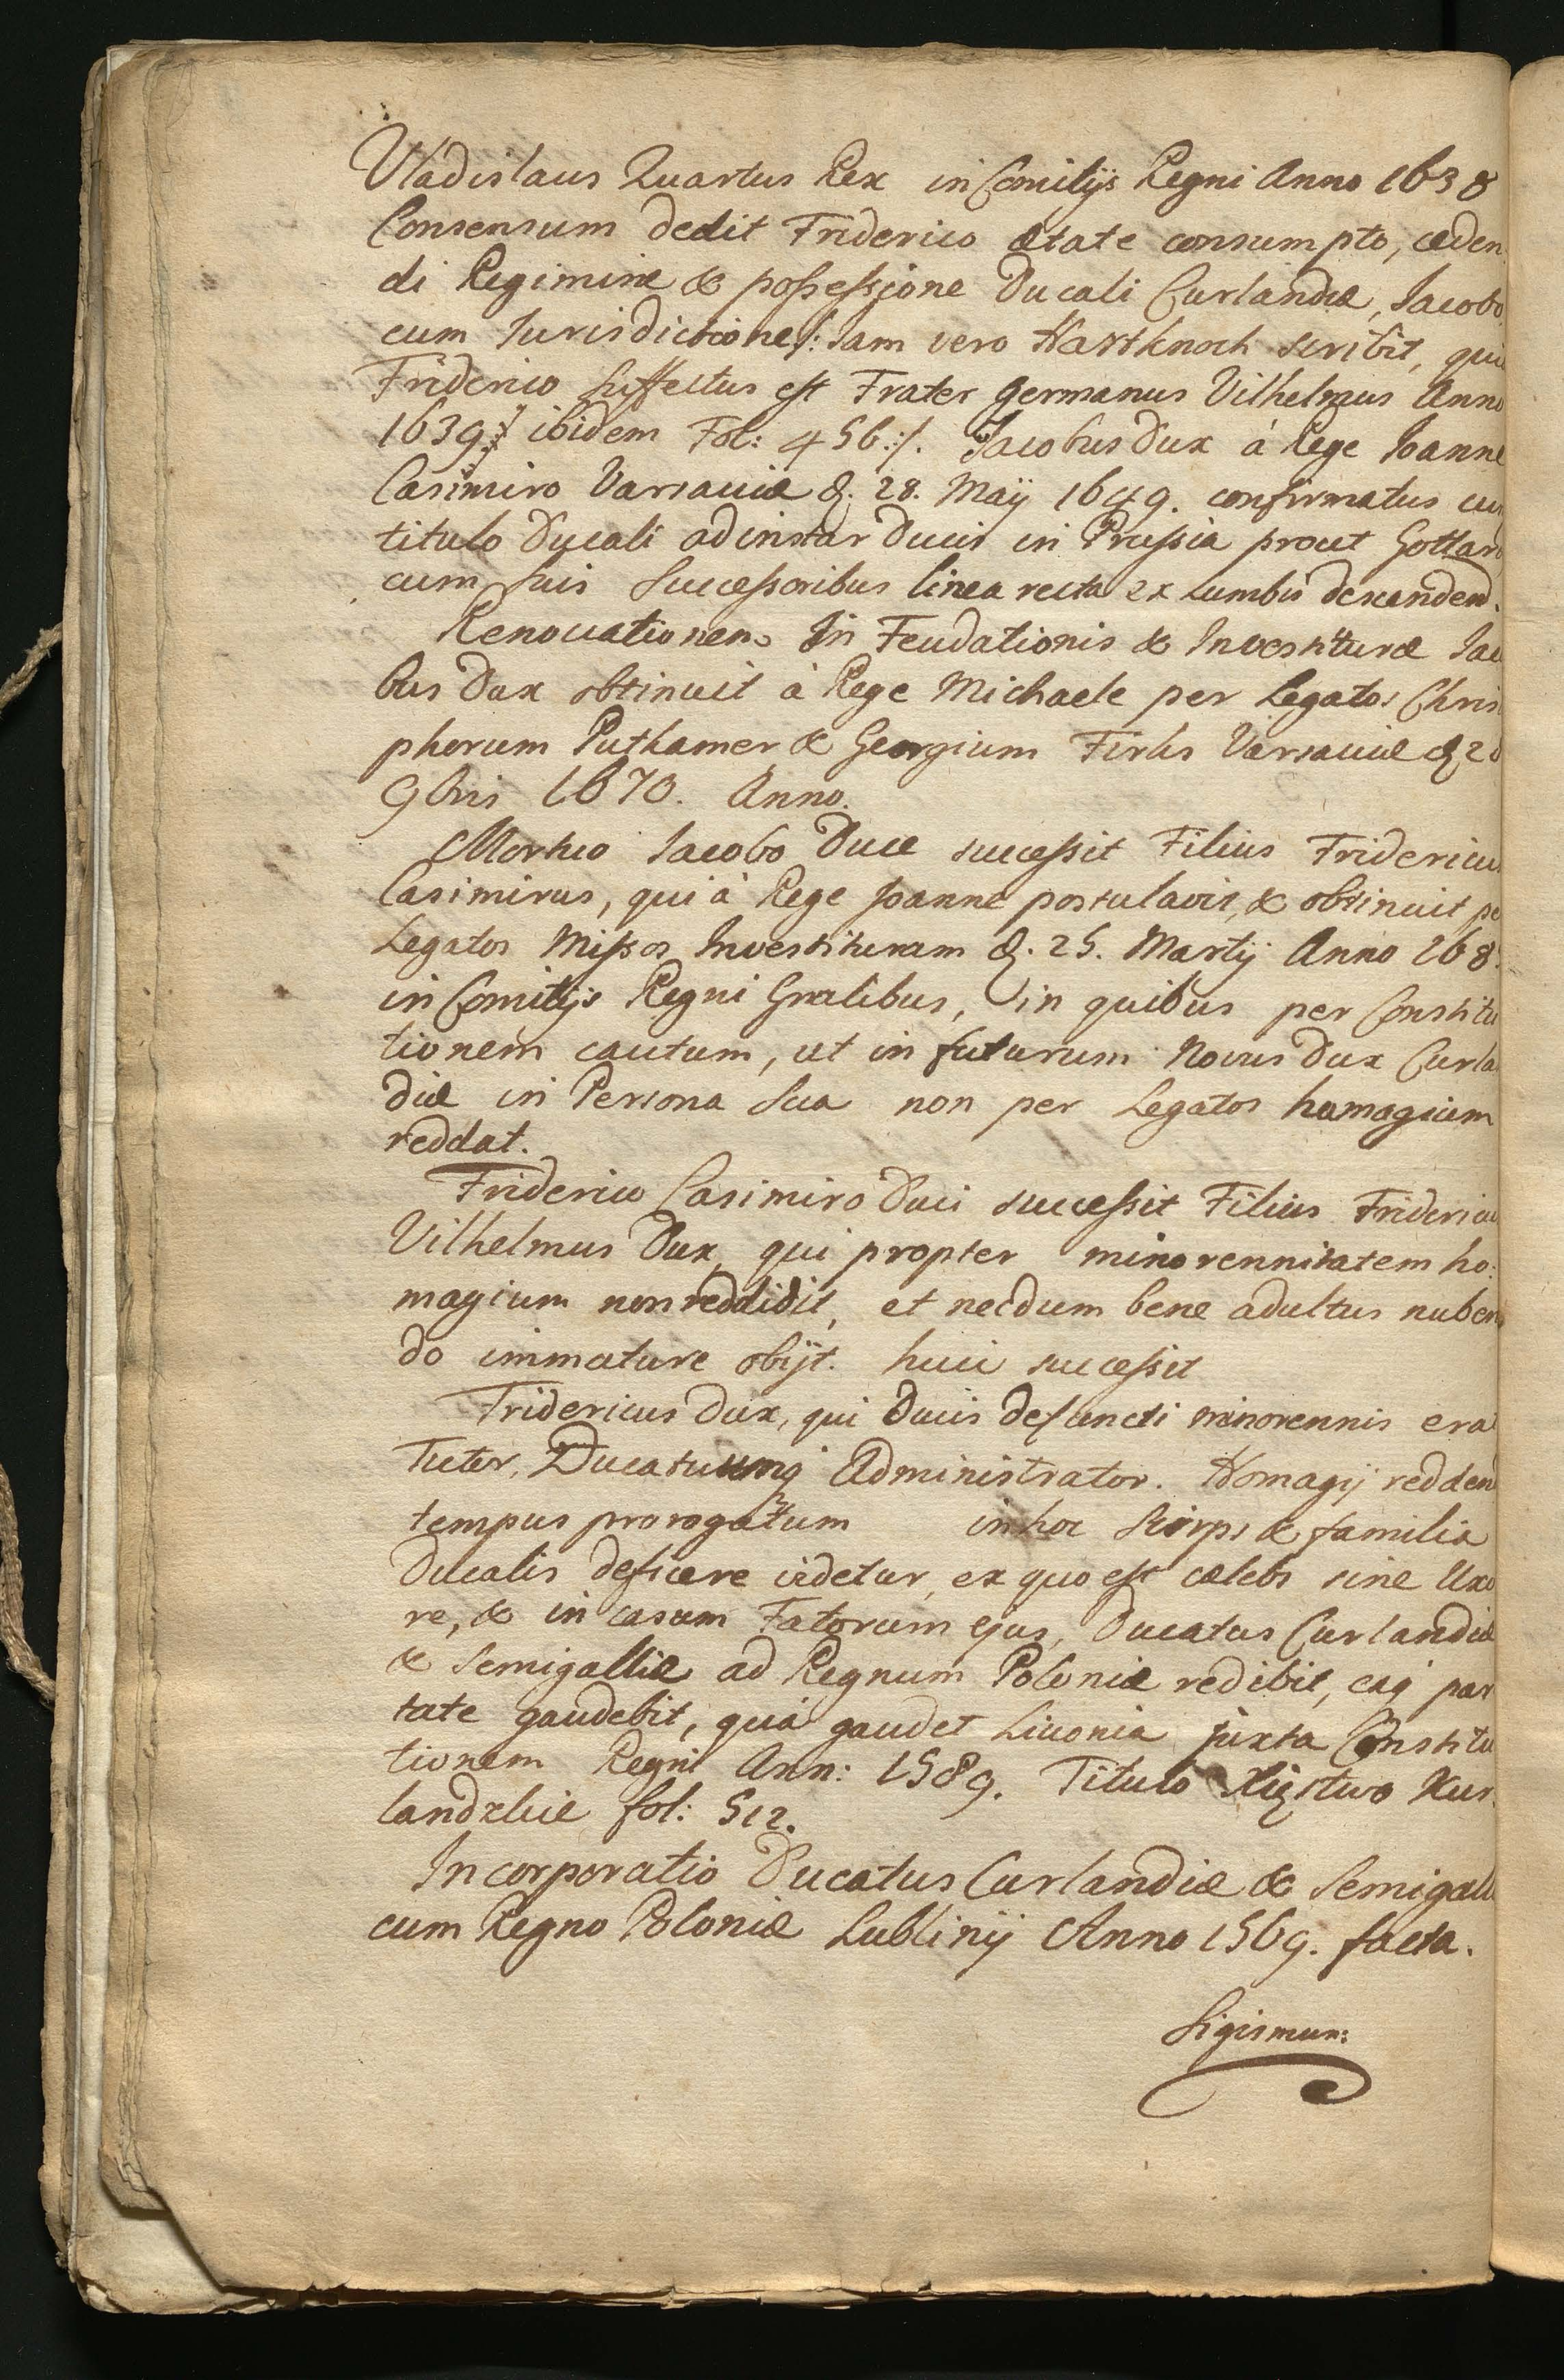 Vladislaus Quartus Rex in Comitijs Regni Anno 1638
Consensum dedit Friderico ætate consumpto, cæden
di Regimine & poßeßione Ducali Curlandiæ, Iacobo
cum Iurisdictione/: Iam vero Hartknoch scribit, qui
Friderico suffectus est Frater Germanus Vilhelmus Anno
1639 ibidem Fol: 456:/. Jacobus Dux à Rege Ioanne
Casimiro Varsaviæ d. 28. Maÿ 1649. confirmatus cu
titulo Ducali ad instar Ducis in Prußia prout Gottar
cum suis Succeßoribus linea recta ex Lumbis descendend.
Renovationem In Feudationis & Investituræ Jac
bus Dux obtinuit à Rege Michaele per Legatos Chris
phorum Puthamer & Georgium Firks Varsaviæ d 20
9bris 1670. Anno.
Mortuo Iacobo Duce succeßit Filius Fridericus
Casimirus, qui à Rege Joanne postulavit, & obtinuit pe
Legatos Mißos Investituram d. 25. Martij Anno 168
in Comitijs Regni Gnalibus, in quibus per Constitu
tionem cautum, ut in futurum Novus Dux Curla
diæ in Persona Sua non per Legatos homagium
reddat.
Friderico Casimiro Duci succeßit Filius Fridericu
Vilhelmus Dux, qui propter minorennitatem ho:
magium non reddidit, et necdum bene adultus nuben
do immature obijt. huic succeßit
Fridericus Dux, qui Ducis defuncti minorennis era
Tutor, Ducatuumq Administrator. Homagij redden
tempus prorogatum in hoc Stirps & familia
Ducalis deficere videtur, ex quo est cælebs sine Uxo
re, & in casum Fatorum ejus, Ducatus Curlandiæ
& Semigalliæ ad Regnum Poloniæ redibit, eaq par
tate gaudebit, quâ gaudet Livonia juxta Constitu
tionem Regni Ann: 1589. Titulo Xięstwo Kur
landzkie fol: 512.
Incorporatio Ducatus Curlandiæ & Semigalli
cum Regno Poloniæ Lublinij Anno 1569. facta.
Sigismun: